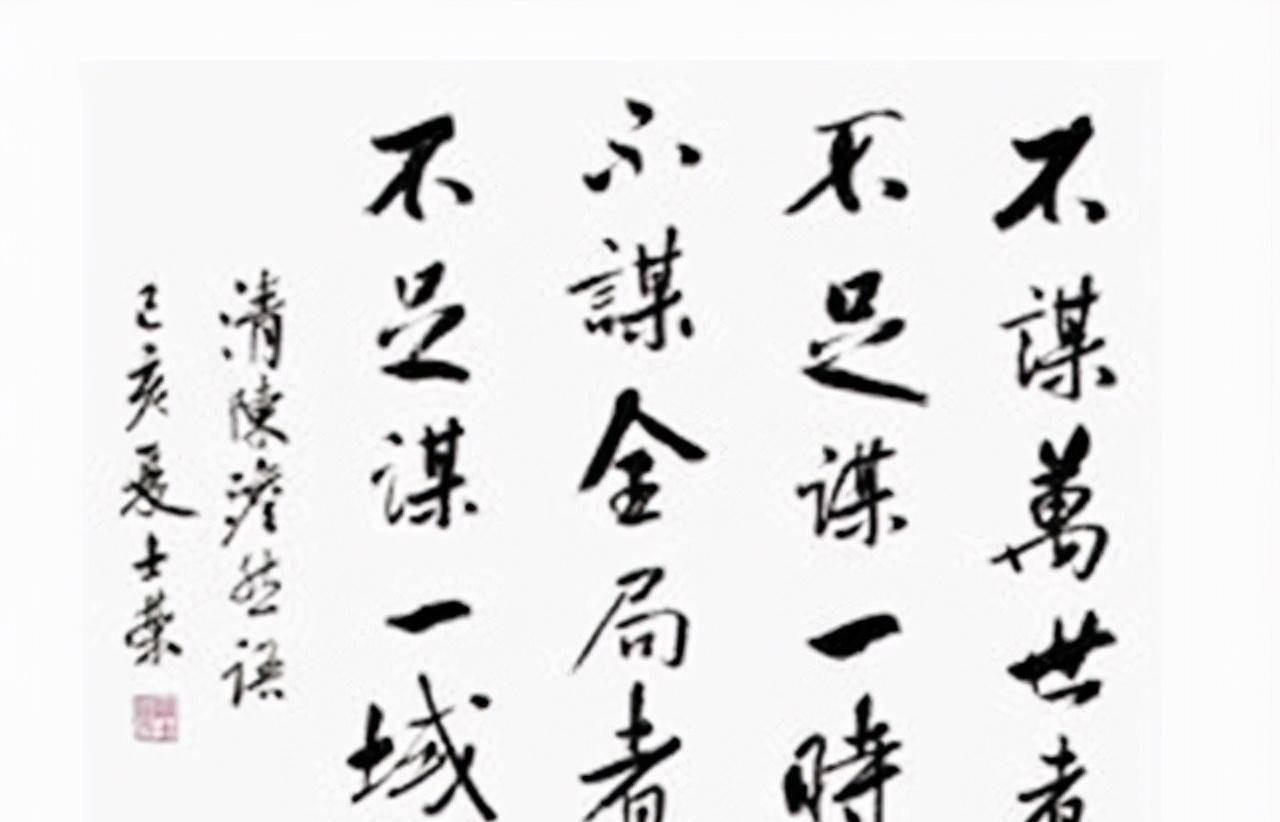 不謀萬世者
不足謀一時
不謀全局者
不足謀一域
清陳澹然語
己亥夏士荣